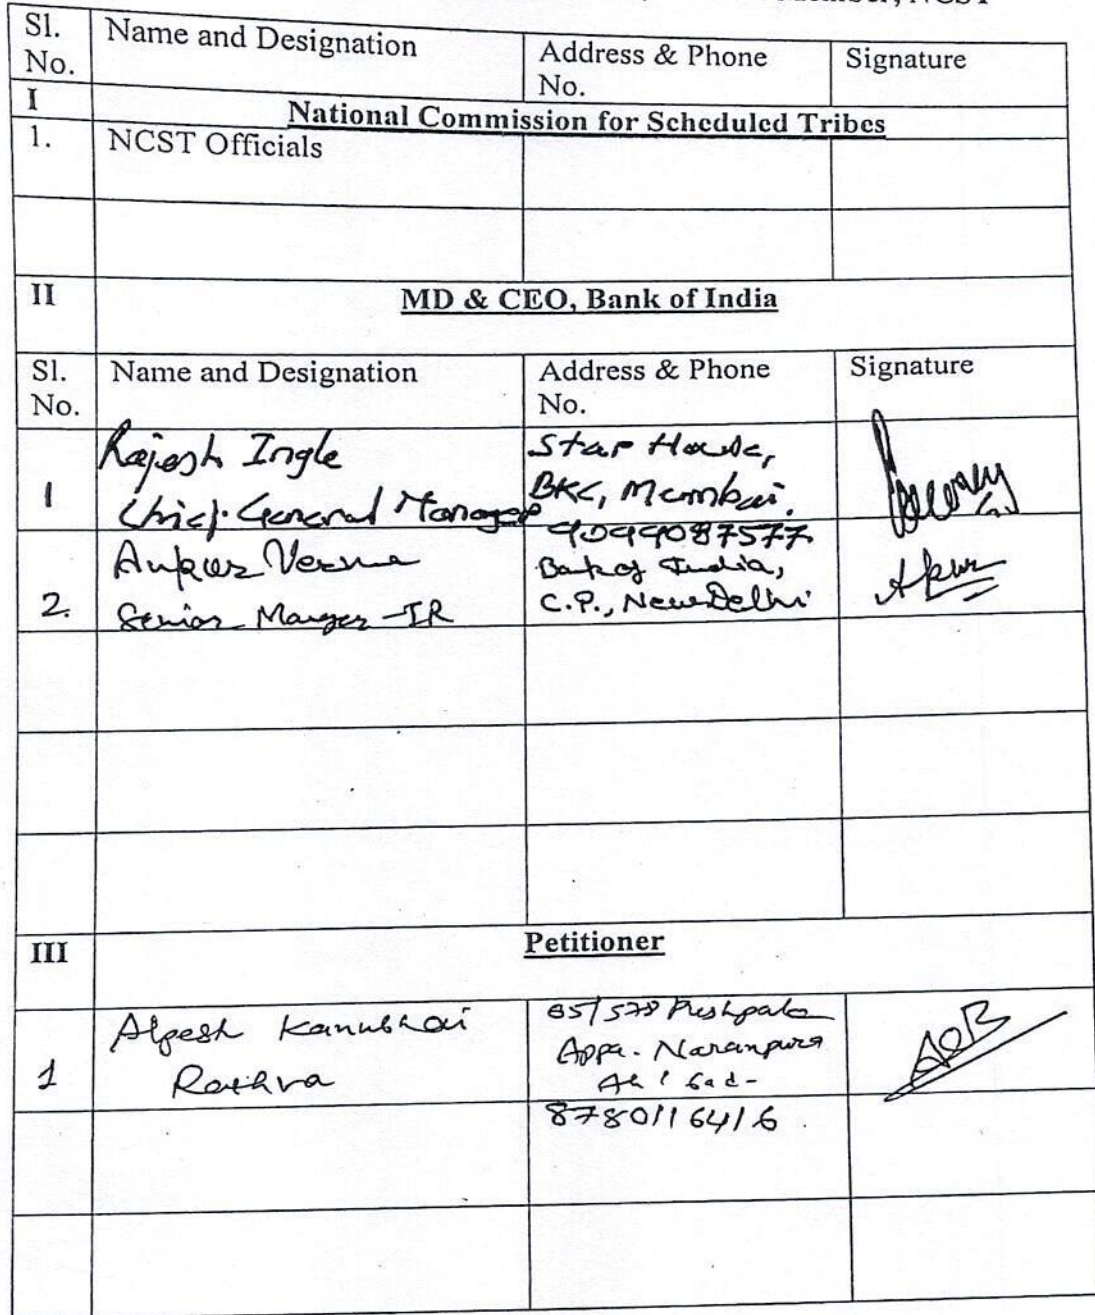 Member, NCST
Sl. No.
Name and Designation
Address & Phone No.
Signature
I
National Commission for Scheduled Tribes
1.
NCST Officials
II
MD & CEO, Bank of India
Sl. No.
Name and Designation
Address & Phone No.
Signature
1
Rajesh Ingle
Chief General Manager
Star House,
BKC, Mumbai.
9099087577
2.
Ankur Verma
Senior Manager-IR
Bank of India,
C.P., New Delhi
III
Petitioner
1
Alpesh Kanubhai
Rathva
Appa. Naranpura
8780116416